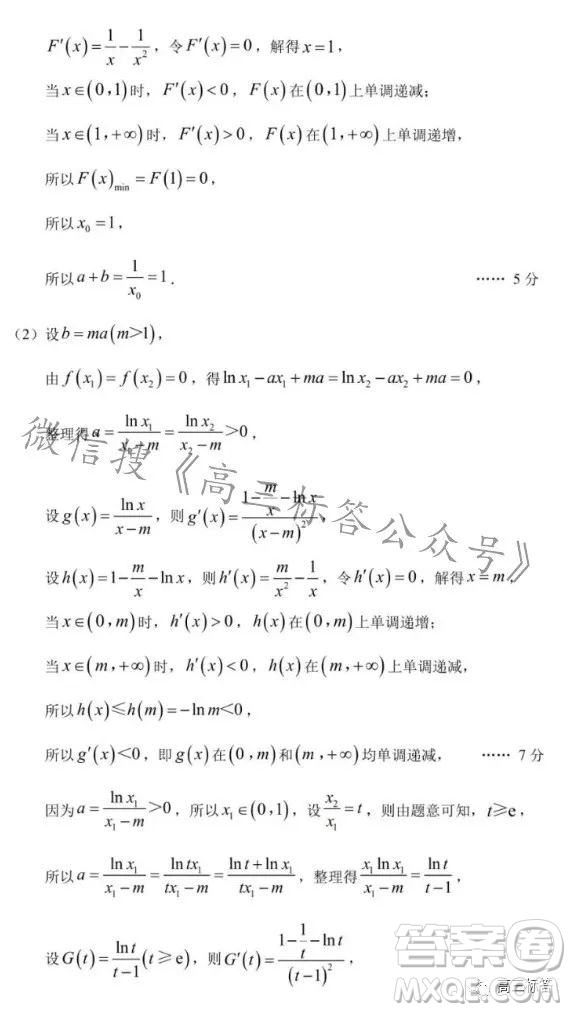 F′(x)=1/x−1/x²，令F′(x)=0，解得x=1，
当x∈(0,1)时，F′(x)<0，F(x)在(0,1)上单调递减；
当x∈(1,+∞)时，F′(x)>0，F(x)在(1,+∞)上单调递增，
所以F(x)min=F(1)=0，
所以x₀=1，
所以a+b=1/x₀=1． …… 5分
（2）设b=ma(m>1)，
由f(x₁)=f(x₂)=0，得ln x₁−ax₁+ma=ln x₂−ax₂+ma=0，
整理得a=ln x₁/(x₁−m)=ln x₂/(x₂−m)>0，
设g(x)=ln x/(x−m)，则g′(x)=(1−m/x−ln x)/(x−m)²，
设h(x)=1−m/x−ln x，则h′(x)=m/x²−1/x，令h′(x)=0，解得x=m，
当x∈(0,m)时，h′(x)>0，h(x)在(0,m)上单调递增；
当x∈(m,+∞)时，h′(x)<0，h(x)在(m,+∞)上单调递减，
所以h(x)≤h(m)=−ln m<0，
所以g′(x)<0，即g(x)在(0,m)和(m,+∞)均单调递减， …… 7分
因为a=ln x₁/(x₁−m)>0，所以x₁∈(0,1)，设x₂/x₁=t，则由题意可知，t≥e，
所以a=ln x₁/(x₁−m)=ln tx₁/(tx₁−m)=(ln t+ln x₁)/(tx₁−m)，整理得x₁ln x₁/(x₁−m)=ln t/(t−1)，
设G(t)=ln t/(t−1)(t≥e)，则G′(t)=(1−1/t−ln t)/(t−1)²，
微信搜《高三标答公众号》
答案圈
高三标答